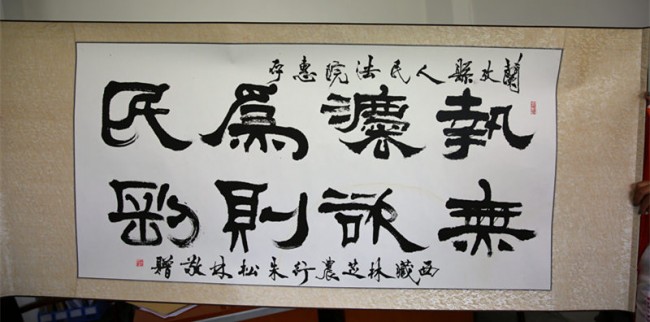 蘭考縣人民法院惠存
執灋為民
無欲則剛
西藏林芝農行朱松林敬贈